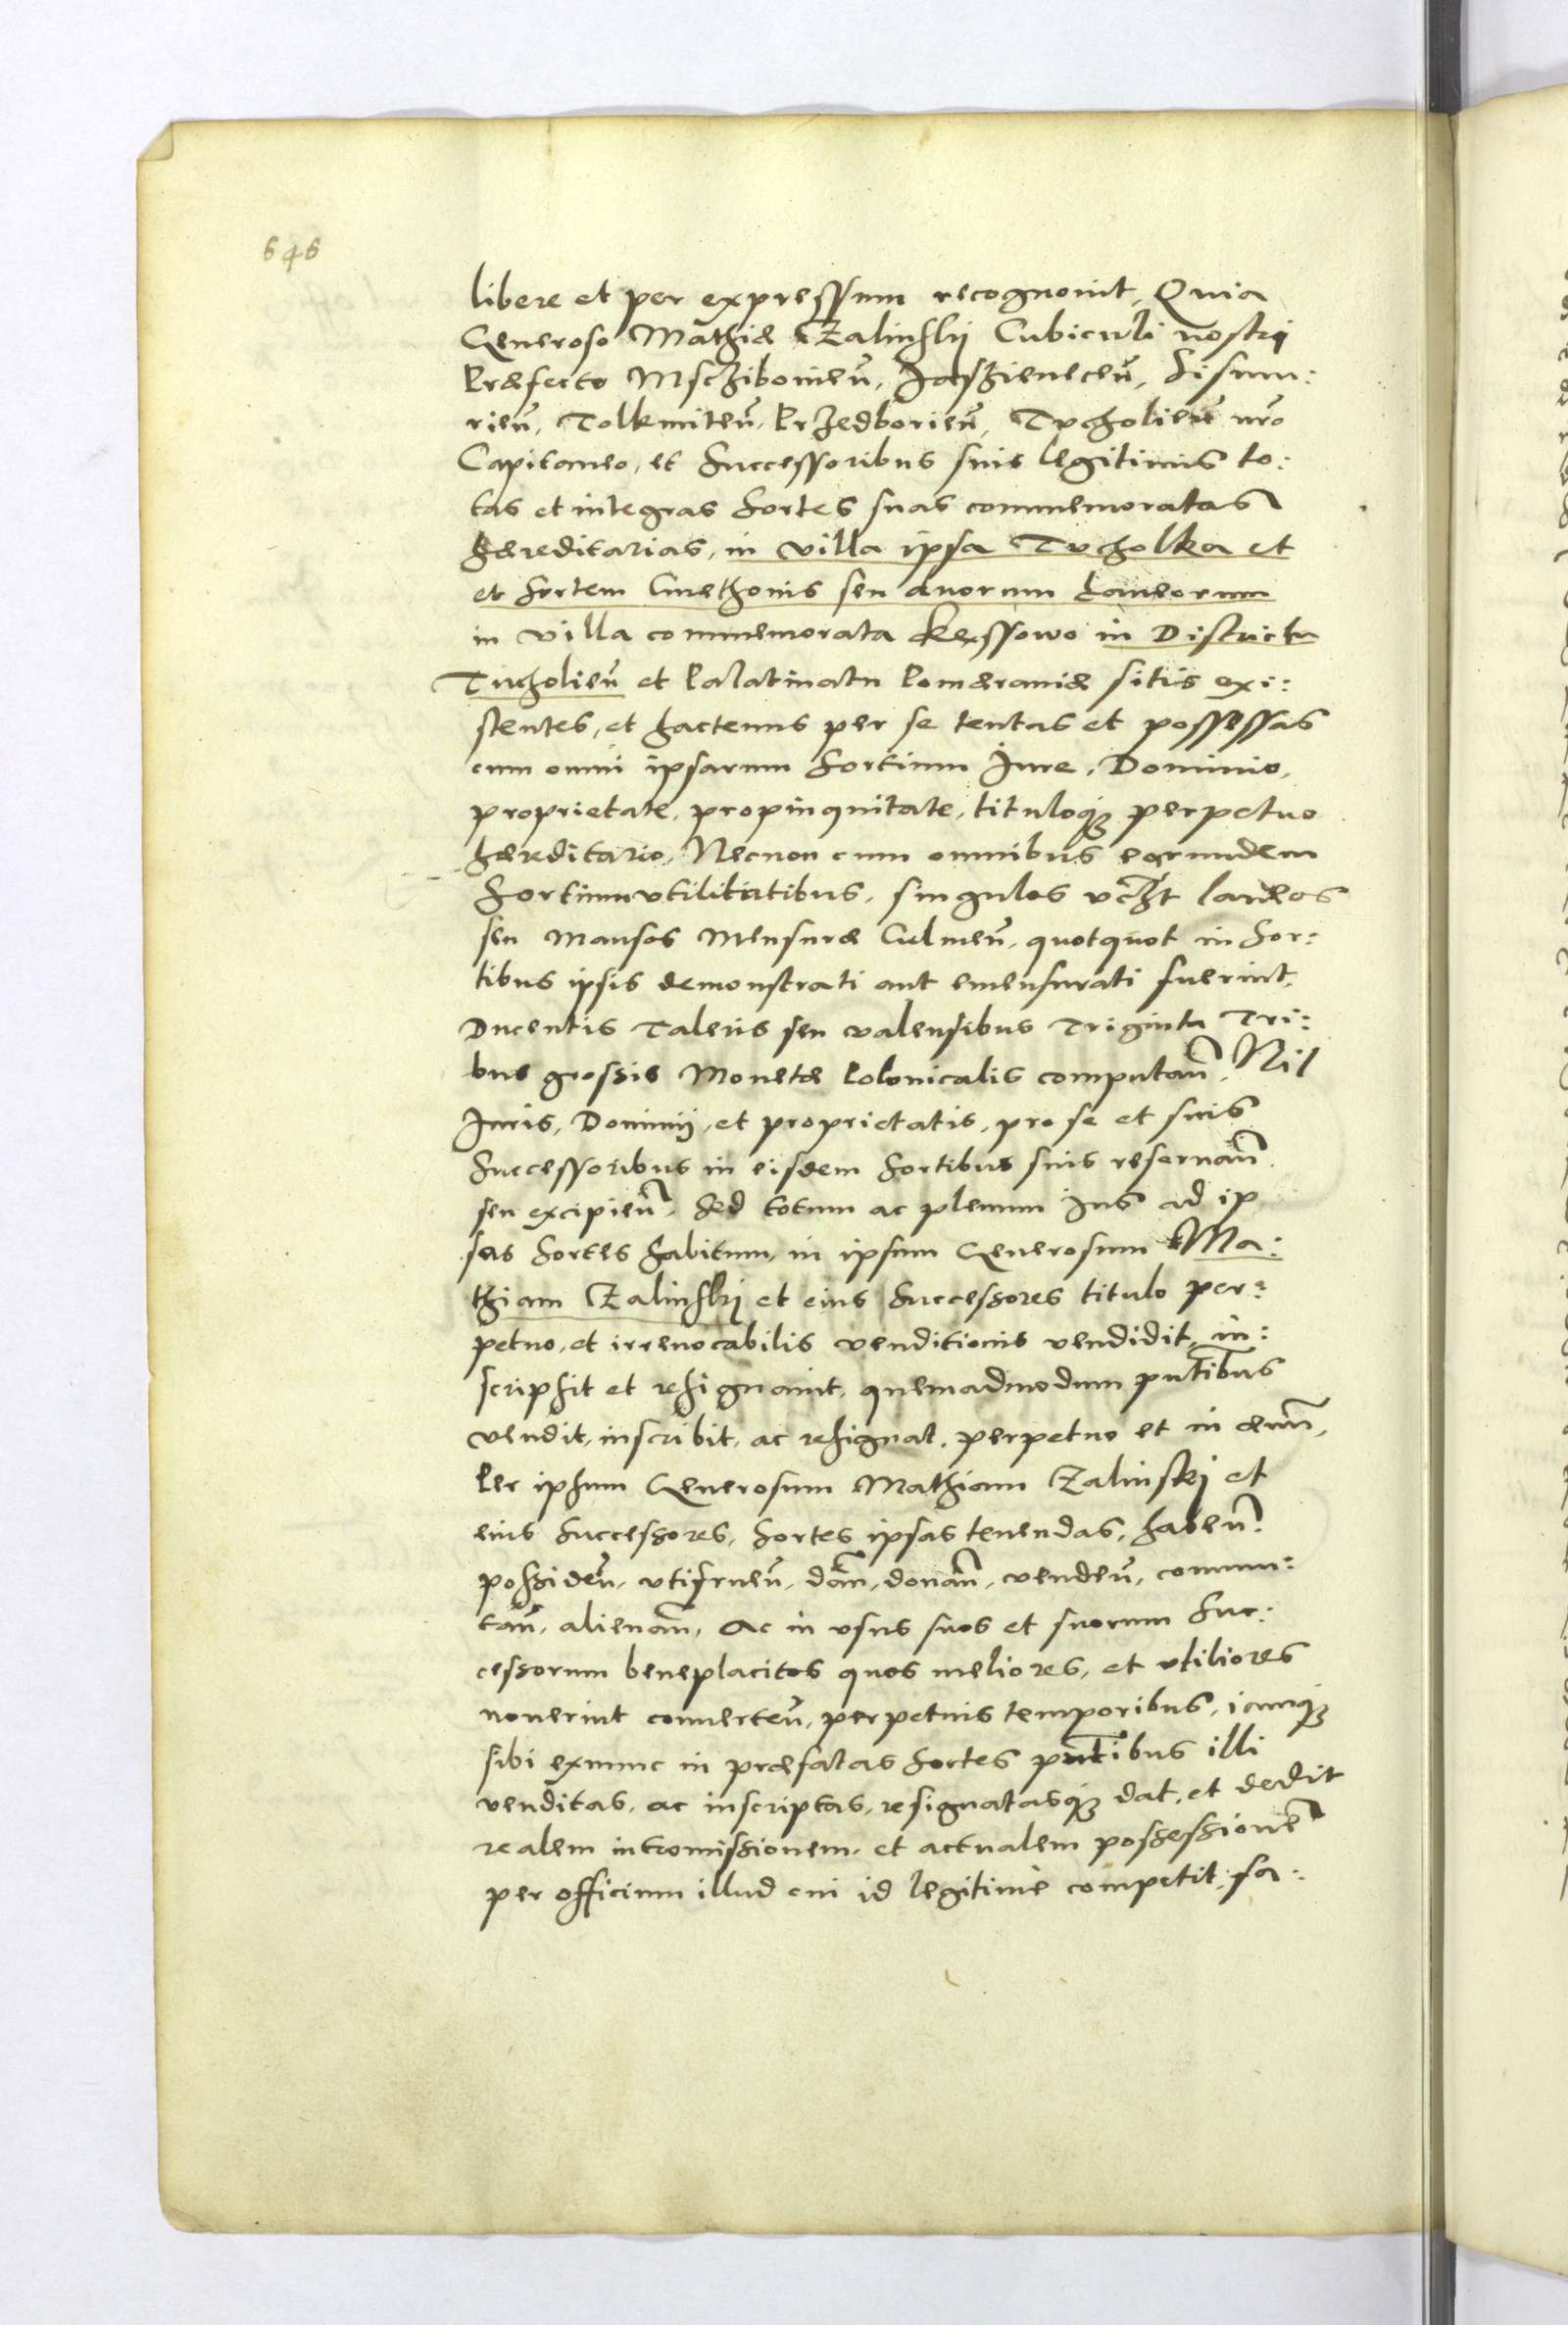 646
libere et per expressum recognouit, Quia
Generoso Mathiæ Zalinskij Cubiculi nostri
Præfecto Msczibouieñ, Jaszieneceñ, Sisum:
rieñ, Tolkmiteñ, Przedborieñ, Tucholieñ nrõ
Capitaneo, et Successoribus suis legitimis to:
tas et integras Sortes suas commemoratas
hæreditarias, in villa ipsa Tucholka et
et Sortem Cmethonis seu duorum Laneorum
in villa commemorata Kęssowo in Districtu
Tucholieñ et Palatinatu Pomeraniæ sitis exi:
stentes, et hactenus per se tentas et possessas
cum omni ipsarum Sortium Jure, Dominio,
proprietate, propinquitate, tituloq; perpetuo
hæreditario, Necnon cum omnibus earundem
Sortium vtilitatibus, singulos vczt laneos
seu Mansos Mensuræ Culmeñ, quotquot in Sor:
tibus ipsis demonstrati aut emensurati fuerint,
Ducentis Taleris seu valensibus Triginta Tri:
bus grossis Monetæ Polonicalis computañ, Nil
Juris, Dominij, et proprietatis, pro se et suis
Successoribus in eisdem Sortibus suis reseruañ
seu excipieñ, Sed totum ac plenum Jus ad ip
sas Sortes habitum, in ipsum Generosum Ma:
thiam Zalinskij et eius Successores titulo per:
petuo, et irreuocabilis venditionis vendidit, in:
scripsit et resignauit, quemadmodum pñtibus
vendit, inscribit, ac resignat, perpetuo et in æuũ,
Per ipsum Generosum Mathiam Zalinskj et
eius Successores, Sortes ipsas tenendas, habeñ
possideñ, vtifrueñ, dañ, donañ, vendeñ, commu:
tañ, alienañ, Ac in vsus suos et suorum Suc:
cessorum beneplacitos quos meliores, et vtiliores
nouerint conuerteñ, perpetuis temporibus, iamq;
sibi exnunc in præfatas Sortes pñtibus illi
venditas, ac inscriptas, resignatasq; dat, et dedit
realem intromissionem, et actualem possessionẽ
per officium illud cui id legitimè competit, fa: